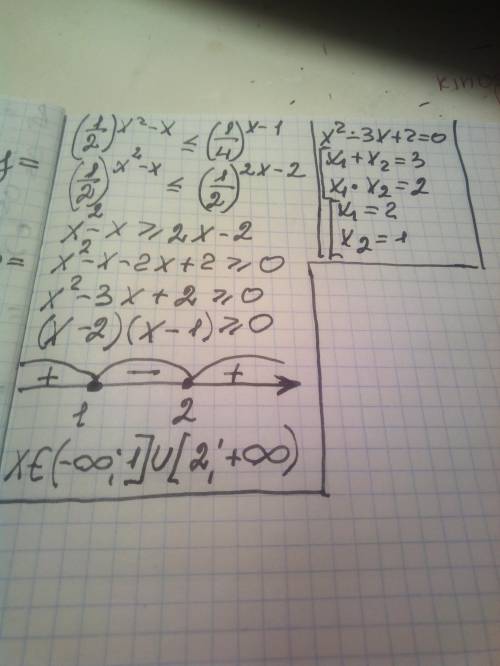 (1/2)^x²-x ≤ (1/4)^x-1
(1/2)^x²-x ≤ (1/2)^2x-2
x²-x ⩾ 2x-2
x²-x-2x+2 ⩾ 0
x²-3x+2 ⩾ 0
(x-2)(x-1) ⩾ 0
+ − +
1 2
x∈(-∞;1]∪[2;+∞)
x²-3x+2=0
x₁+x₂=3
x₁·x₂=2
x₁=2
x₂=1